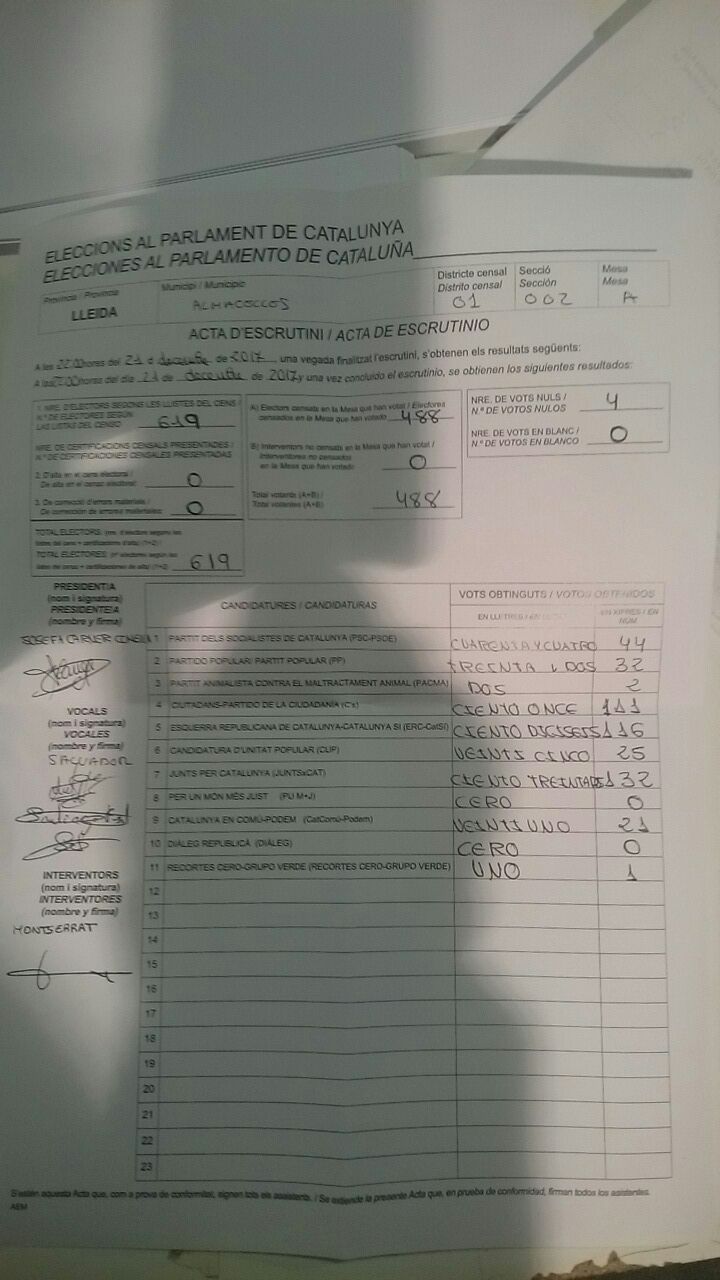 ELECCIONS AL PARLAMENT DE CATALUNYA
ELECCIONES AL PARLAMENTO DE CATALUÑA
Provincia / Provincia
LLEIDA
Municipi / Municipio
ALMACELLES
Districte censal
Distrito censal
01
Secció
Sección
002
Mesa
Mesa
A
ACTA D'ESCRUTINI / ACTA DE ESCRUTINIO
A les 22:00 hores del 21 d de 2017, una vegada finalitzat l'escrutini, s'obtenen els resultats següents:
A las horas del día 21 de de 2017 y una vez concluido el escrutinio, se obtienen los siguientes resultados:
1. NRE. D'ELECTORS SEGONS LES LLISTES DEL CENS /
N.º DE ELECTORES SEGÚN
LAS LISTAS DEL CENSO 619
NRE. DE CERTIFICACIONS CENSALS PRESENTADES /
N.º DE CERTIFICACIONES CENSALES PRESENTADAS
2. D'alta en el cens electoral /
De alta en el censo electoral: 0
3. De correcció d'errors materials /
De corrección de errores materiales: 0
TOTAL ELECTORS: (nre. d'electors segons les
llistes del cens + certificacions d'alta) (1+2) /
TOTAL ELECTORES: (nº electores según las
listas del censo + certificaciones de alta) (1+2) 619
A) Electors censats en la Mesa que han votat / Electores
censados en la Mesa que han votado 488
B) Interventors no censats en la Mesa que han votat /
Interventores no censados
en la Mesa que han votado 0
Total votants (A+B) /
Total votantes (A+B) 488
NRE. DE VOTS NULS /
N.º DE VOTOS NULOS 4
NRE. DE VOTS EN BLANC /
N.º DE VOTOS EN BLANCO 0
PRESIDENT/A
(nom i signatura)
PRESIDENTE/A
(nombre y firma)
JOSEFA
VOCALS
(nom i signatura)
VOCALES
(nombre y firma)
SALVADOR
INTERVENTORS
(nom i signatura)
INTERVENTORES
(nombre y firma)
MONTSERRAT
CANDIDATURES / CANDIDATURAS
VOTS OBTINGUTS / VOTOS OBTENIDOS
EN LLETRES / EN LETRA
EN XIFRES / EN NÚM
1 PARTIT DELS SOCIALISTES DE CATALUNYA (PSC-PSOE) CUARENTA Y CUATRO 44
2 PARTIDO POPULAR/ PARTIT POPULAR (PP) TREINTA Y DOS 32
3 PARTIT ANIMALISTA CONTRA EL MALTRACTAMENT ANIMAL (PACMA) DOS 2
4 CIUTADANS-PARTIDO DE LA CIUDADANÍA (C's) CIENTO ONCE 111
5 ESQUERRA REPUBLICANA DE CATALUNYA-CATALUNYA SÍ (ERC-CatSí) CIENTO DICISEIS 116
6 CANDIDATURA D'UNITAT POPULAR (CUP) VEINTI CINCO 25
7 JUNTS PER CATALUNYA (JUNTSxCAT) CIENTO TREINTADOS 132
8 PER UN MÓN MÉS JUST (PUM+J) CERO 0
9 CATALUNYA EN COMÚ-PODEM (CatComú-Podem) VEINTIUNO 21
10 DIÀLEG REPUBLICÀ (DIÀLEG) CERO 0
11 RECORTES CERO-GRUPO VERDE (RECORTES CERO-GRUPO VERDE) UNO 1
12
13
14
15
16
17
18
19
20
21
22
23
S'estén aquesta Acta que, com a prova de conformitat, signen tots els assistents. / Se extiende la presente Acta que, en prueba de conformidad, firman todos los asistentes.
AEM